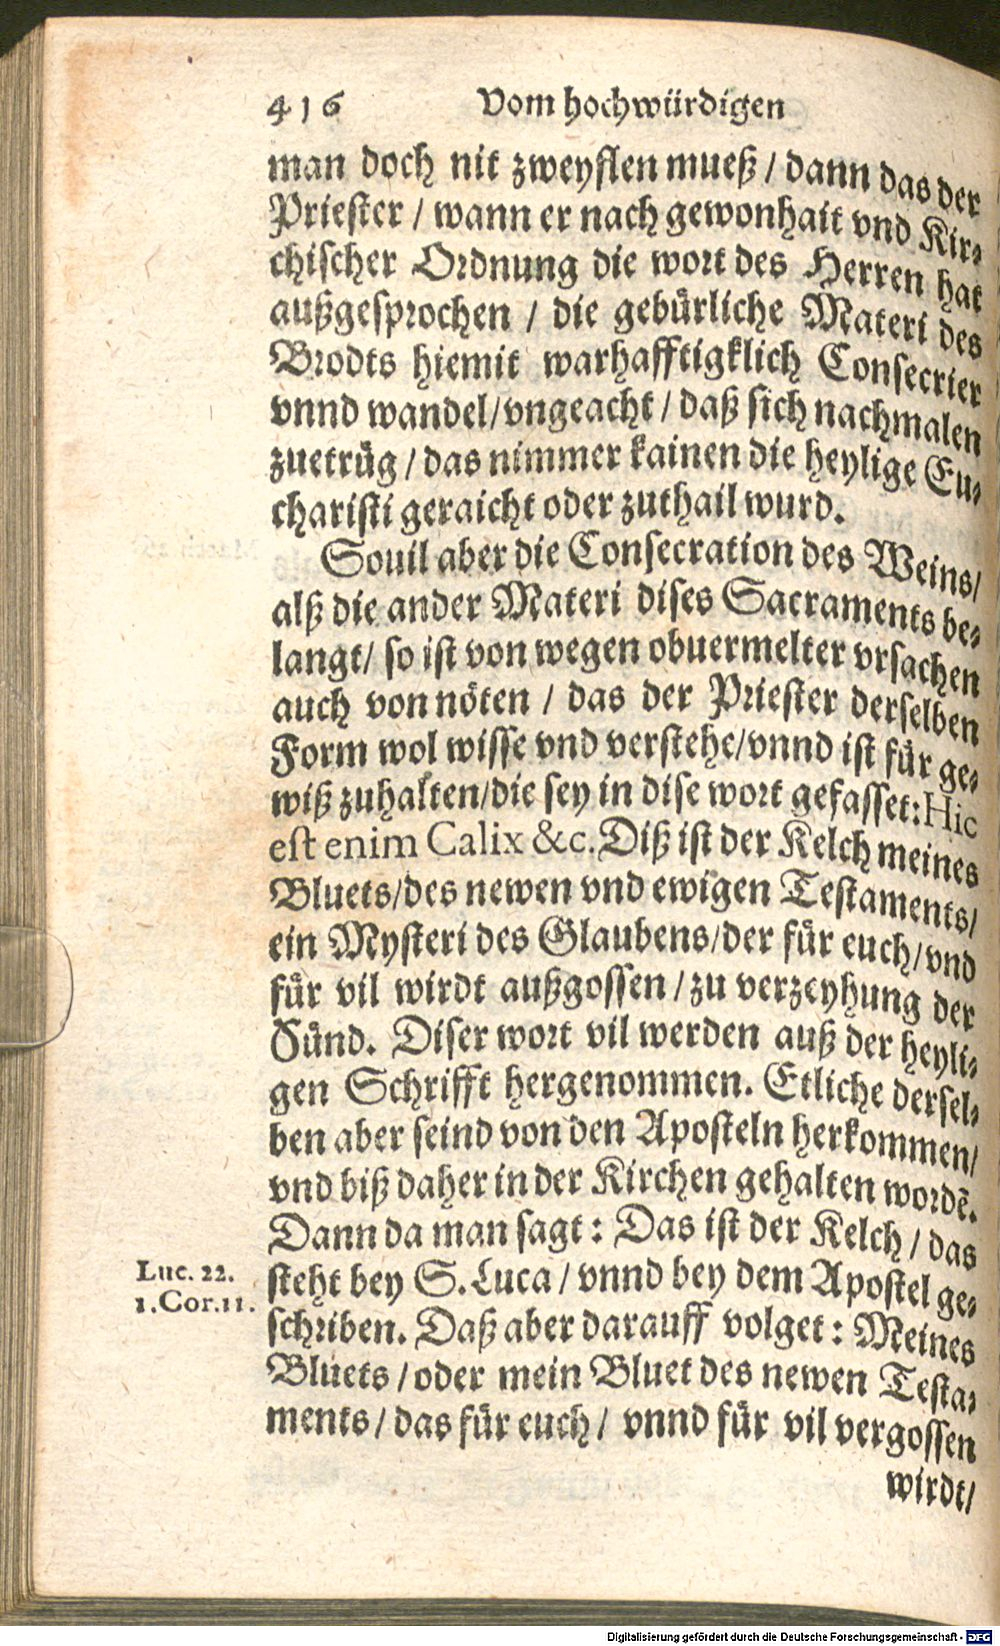 416 Vom hochwürdigen
man doch nit zweyflen mueß / dann das der
Priester / wann er nach gewonhait vnd Kir⸗
chischer Ordnung die wort des Herren hat
außgesprochen / die gebürliche Materi des
Brodts hiemit warhafftigklich Consecrier
vnnd wandel/vngeacht / daß sich nachmalen
zuetrüg / das nimmer kainen die heylige Eu⸗
charisti geraicht oder zuthail wurd.
Souil aber die Consecration des Weins/
alß die ander Materi dises Sacraments be⸗
langt/ so ist von wegen obuermelter vrsachen
auch von nöten / das der Priester derselben
Form wol wisse vnd verstehe/vnnd ist für ge⸗
wiß zuhalten/die sey in dise wort gefasset:Hic
est enim Calix &c.Diß ist der Kelch meines
Bluets/des newen vnd ewigen Testaments/
ein Mysteri des Glaubens/der für euch/vnd
für vil wirdt außgossen / zu verzeyhung der
Sünd. Diser wort vil werden auß der heyli⸗
gen Schrifft hergenommen. Etliche dersel⸗
ben aber seind von den Aposteln herkommen/
vnd biß daher in der Kirchen gehalten wordē.
Dann da man sagt : Das ist der Kelch / das
Luc. 22. steht bey S.Luca / vnnd bey dem Apostel ge⸗
1.Cor.11. schriben. Daß aber darauff volget : Meines
Bluets / oder mein Bluet des newen Testa⸗
ments / das für euch / vnnd für vil vergossen
wirdt/
Digitalisierung gefördert durch die Deutsche Forschungsgemeinschaft - DFG